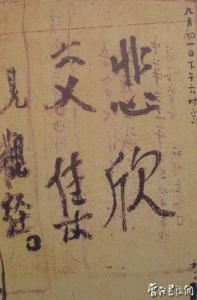 九月初一日下午六時寫
悲欣
交集
見觀經。